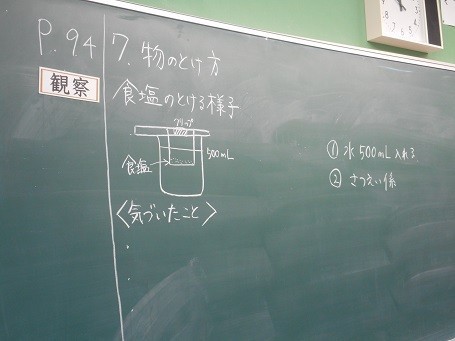 P.94
観察
7. 物のとけ方
食塩のとける様子
クリップ
500mL
食塩
〈気づいたこと〉
・
・
① 水 500mL 入れる
② さつえい係